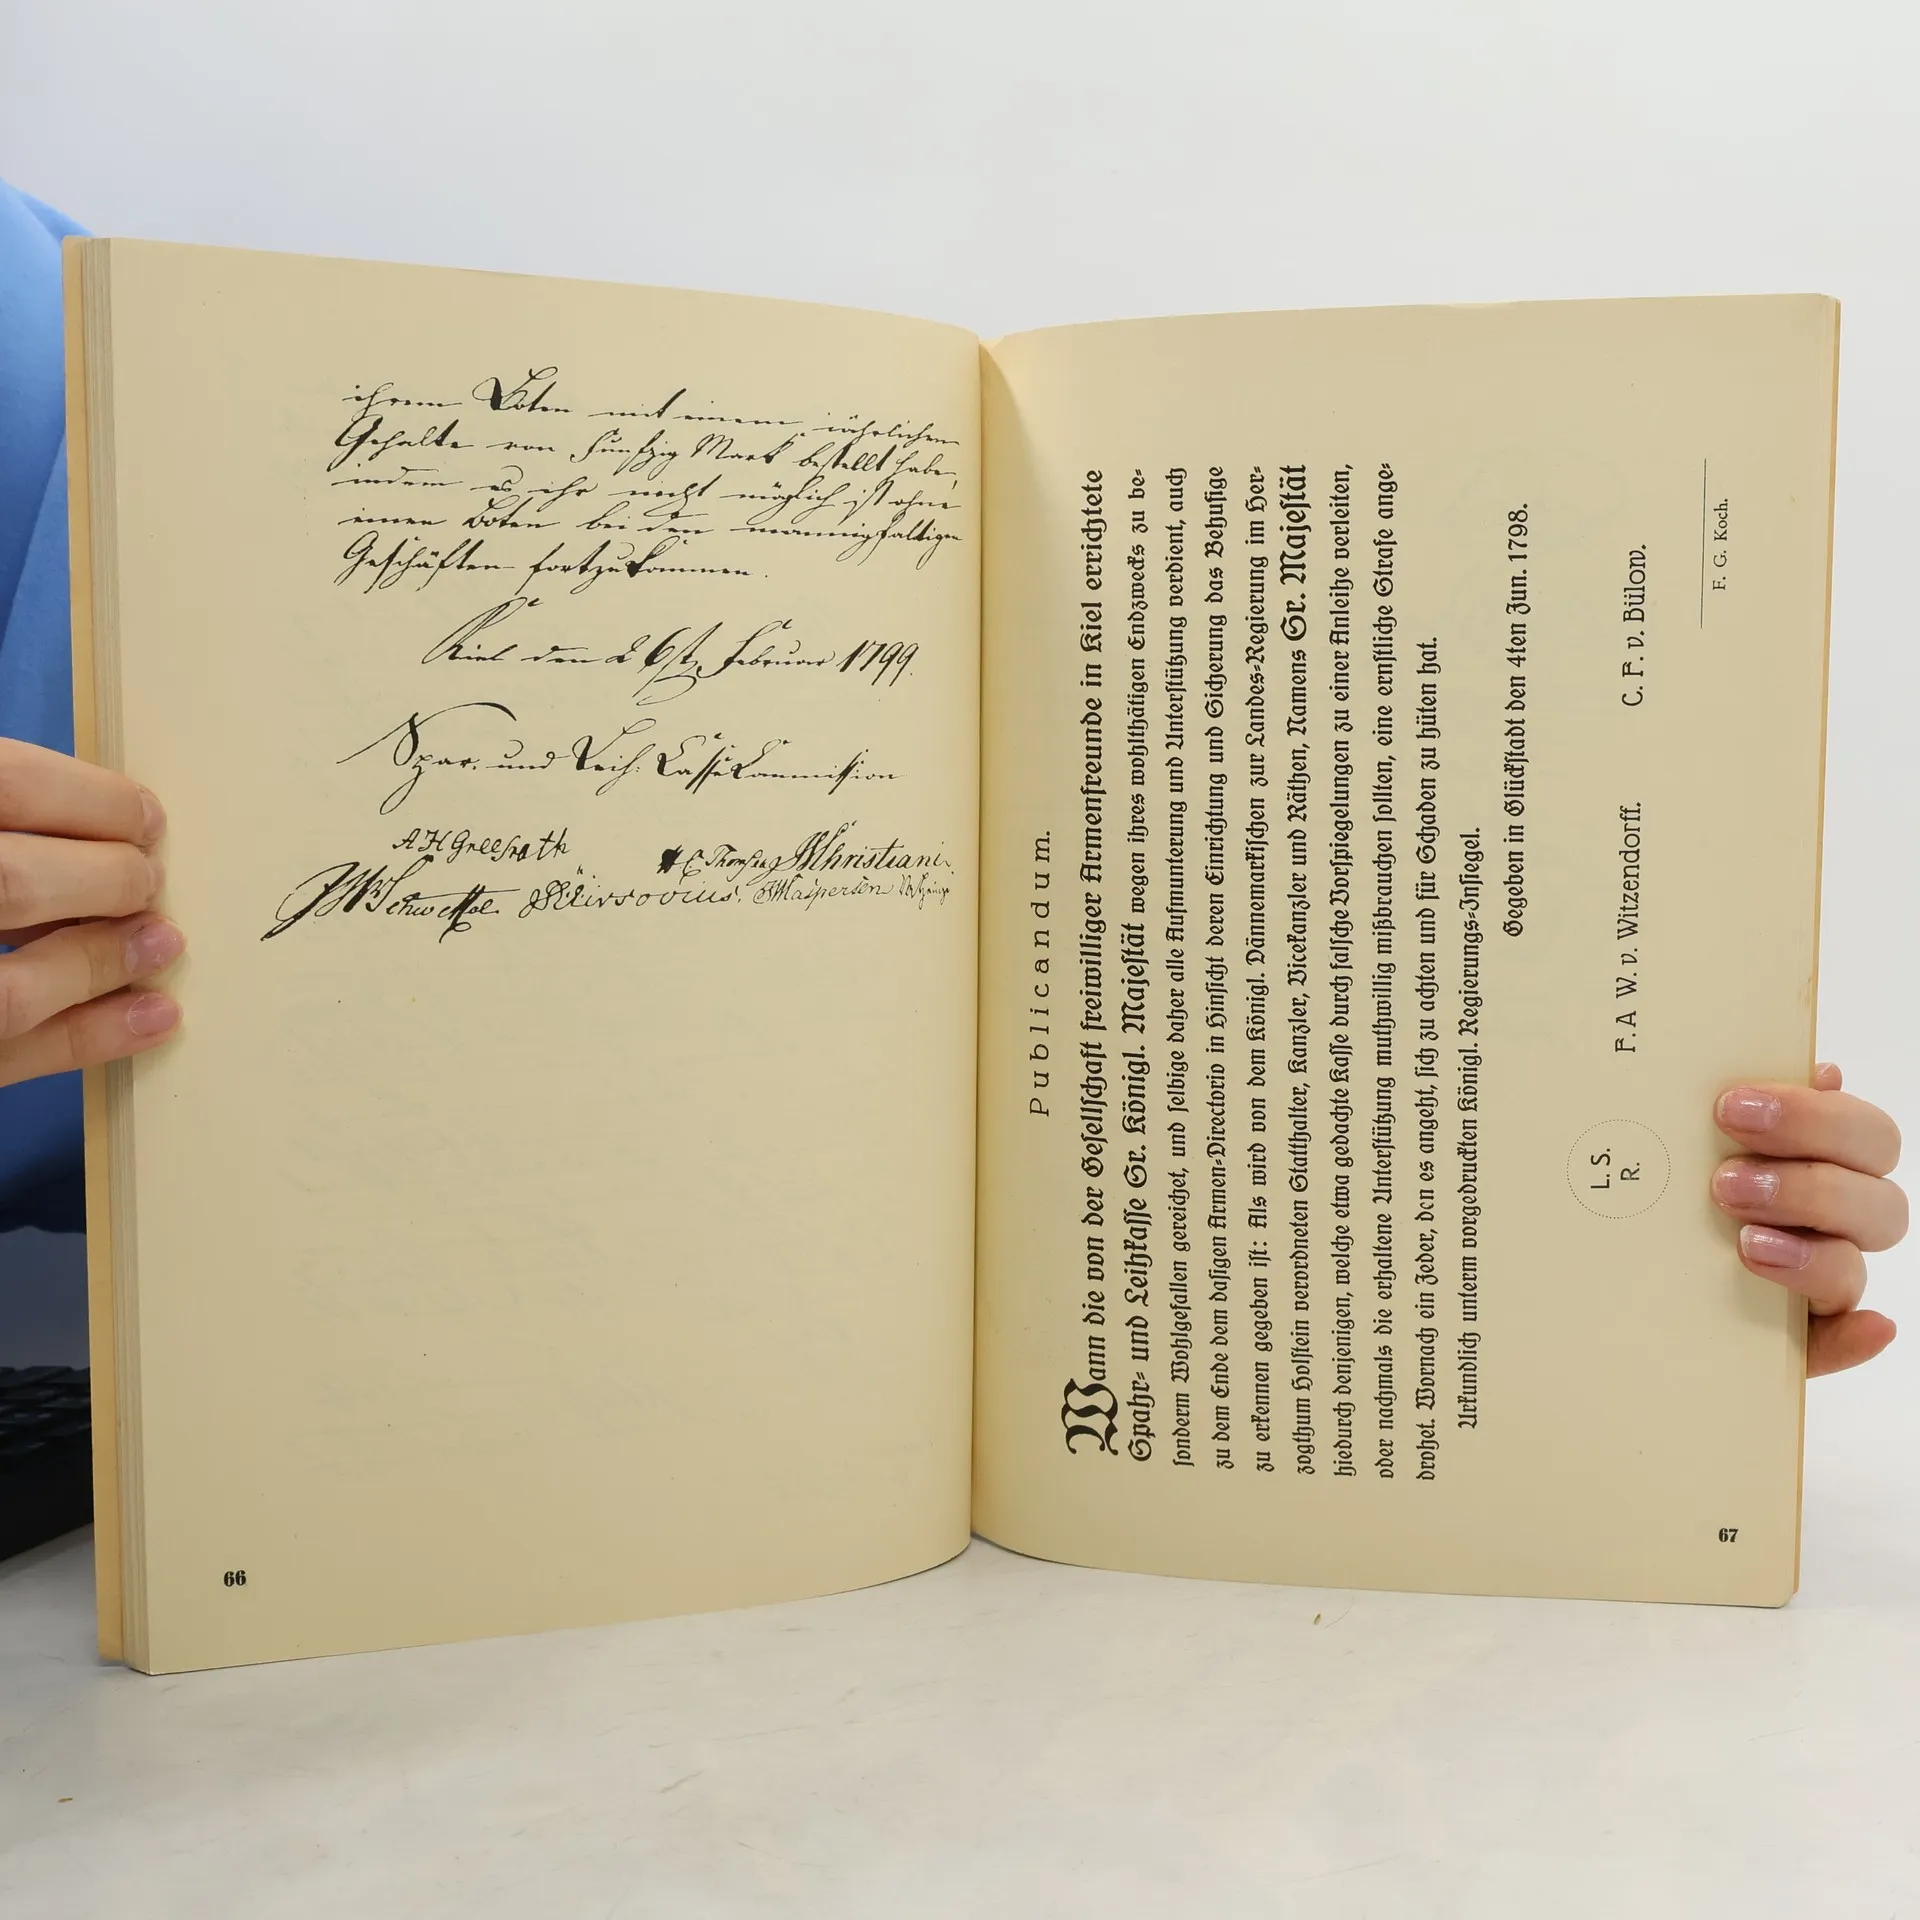 ihrem Boten mit einem jährlichen
Gehalte von Funfzig Mark bestellt habe,
indem es ihr nicht möglich ist ohne
einen Boten bei den mannigfaltigen
Geschäften fortzukommen.
Kiel den 26st Februar 1799.
Spar- und Leih-Casse Commission
Christiani
66
Publicandum.
Wann die von der Geſellſchaft freiwilliger Armenfreunde in Kiel errichtete
Spahr- und Leihkaſſe Sr. Königl. Majeſtät wegen ihres wohlthätigen Endzwecks zu be-
ſonderm Wohlgefallen gereichet, und ſelbige daher alle Aufmunterung und Unterſtützung verdient, auch
zu dem Ende dem daſigen Armen-Directorio in Hinſicht deren Einrichtung und Sicherung das Behufige
zu erkennen gegeben iſt: Als wird von dem Königl. Dännemarkiſchen zur Landes-Regierung im Her-
zogthum Holſtein verordneten Statthalter, Kanzler, Vicekanzler und Räthen, Namens Sr. Majeſtät
hiedurch denjenigen, welche etwa gedachte Kaſſe durch falſche Vorſpiegelungen zu einer Anleihe verleiten,
oder nachmals die erhaltene Unterſtützung muthwillig mißbrauchen ſollten, eine ernſtliche Strafe ange-
drohet. Wornach ein Jeder, den es angeht, ſich zu achten und für Schaden zu hüten hat.
Urkundlich unterm vorgedruckten Königl. Regierungs-Inſiegel.
Gegeben in Glückſtadt den 4ten Jun. 1798.
L. S.
R.
F. A W. v. Witzendorff. C. F. v. Bülow.
F. G. Koch.
67